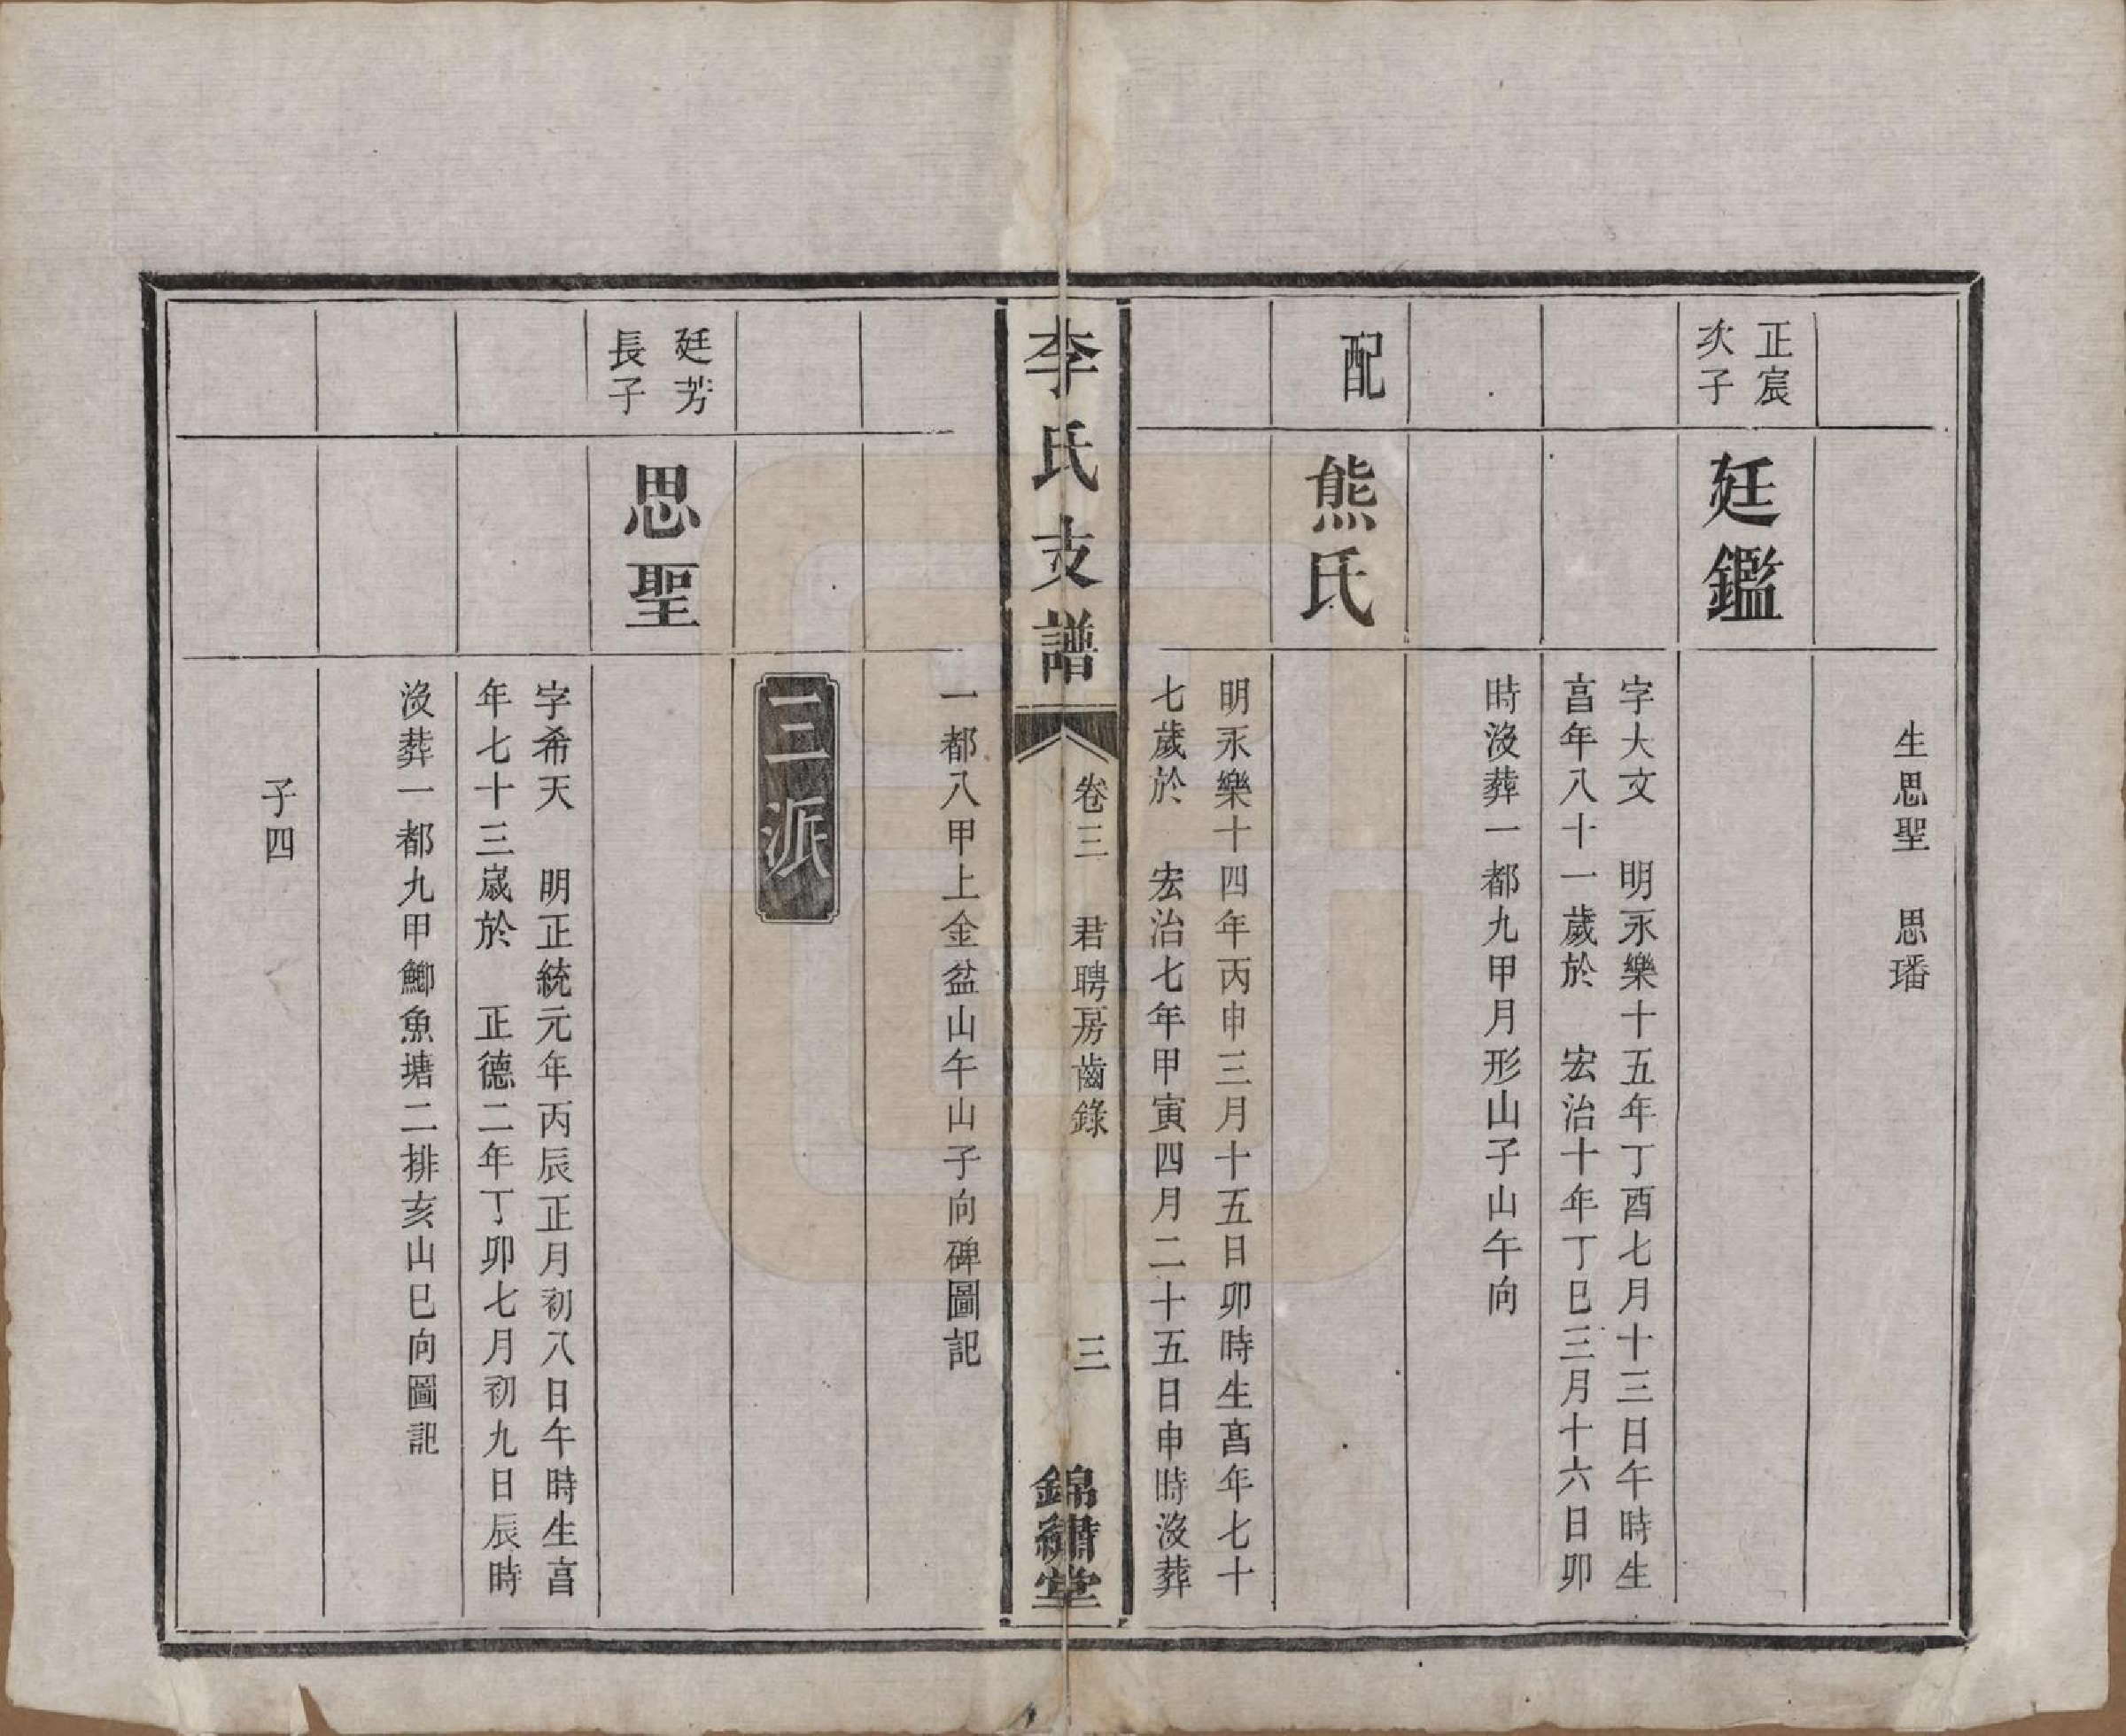 生思聖　思璠
正宸
次子
廷鑑
字大文　明永樂十五年丁酉七月十三日午時生
亯年八十一歲於　宏治十年丁巳三月十六日卯
時沒葬一都九甲月形山子山午向
配
熊氏
明永樂十四年丙申三月十五日卯時生亯年七十
七歲於　宏治七年甲寅四月二十五日申時沒葬
李氏支譜
卷三　君聘房齒錄
三
錦繡堂
一都八甲上金盆山午山子向碑圖記
三派
廷芳
長子
思聖
字希天　明正統元年丙辰正月初八日午時生亯
年七十三歲於　正德二年丁卯七月初九日辰時
沒葬一都九甲鯽魚塘二排亥山巳向圖記
子四